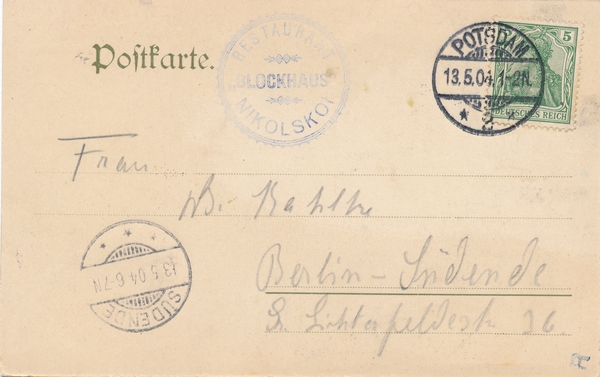 Postkarte.
RESTAURANT
BLOCKHAUS
NIKOLSKOI
POTSDAM
13.5.04.1-2N.
2
5
DEUTSCHES REICH
Frau
W. Bahlke
Berlin-Südende
13.5.04.6-7N
SÜDENDE
Lichterfeldestr 36